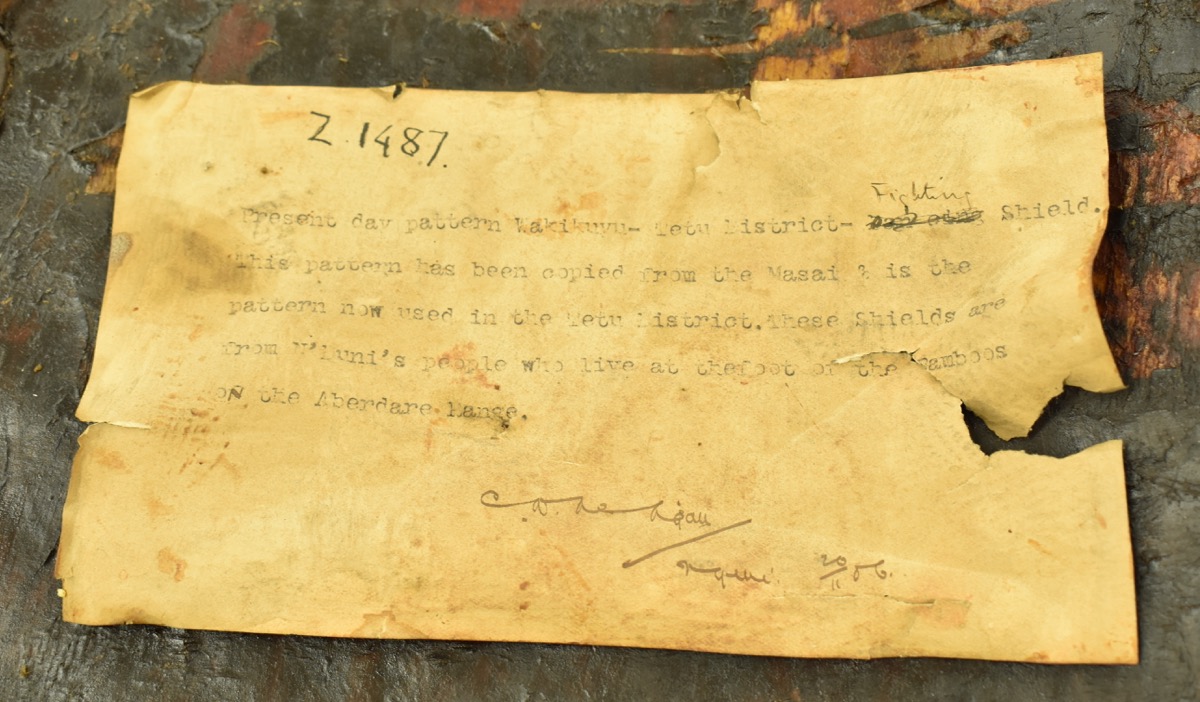 Z 1487.
Fighting
Present day pattern Wakikuyu- Tetu District- Shield.
This pattern has been copied from the Masai & is the
pattern now used in the Tetu District.These Shields are
from people who live at thefoot of the Bamboos
on the Aberdare Range.
C.W.
20/11 06.